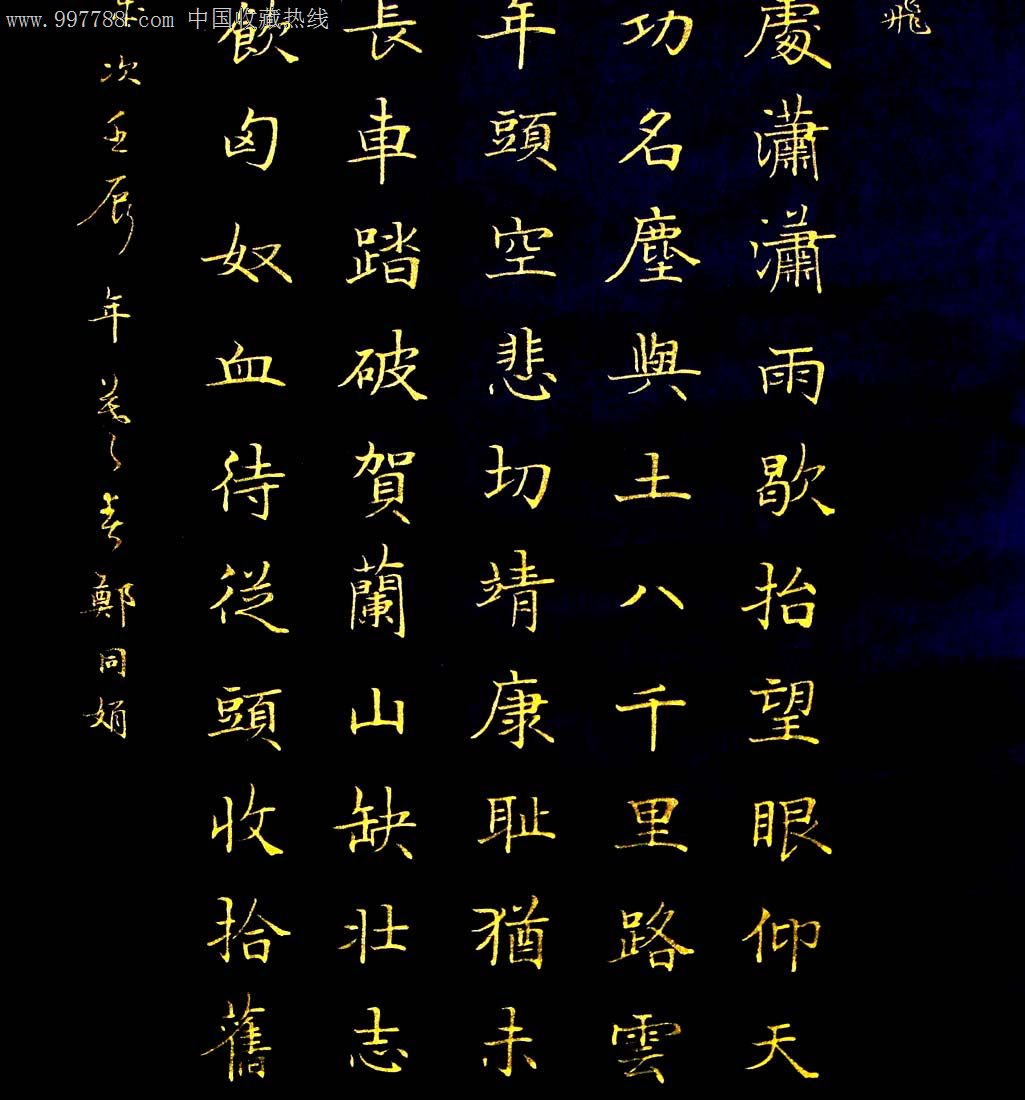 www.997788.com 中国收藏热线
飛
處瀟瀟雨歇抬望眼仰天
功名塵與土八千里路雲
年頭空悲切靖康耻猶未
長車踏破賀蘭山缺壯志
飲匈奴血待從頭收拾舊
次壬辰年暮之春鄭同娟